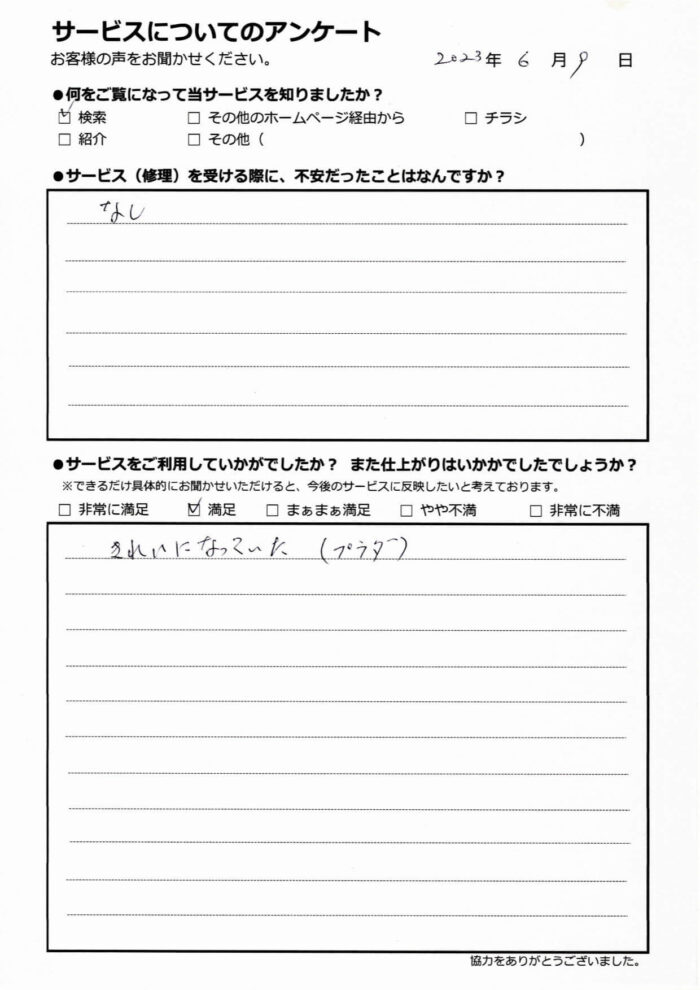 サービスについてのアンケート
お客様の声をお聞かせください。
2023年 6 月 9 日
●何をご覧になって当サービスを知りましたか？
☑ 検索 □ その他のホームページ経由から □ チラシ
□ 紹介 □ その他（ ）
●サービス（修理）を受ける際に、不安だったことはなんですか？
なし
●サービスをご利用していかがでしたか？ また仕上がりはいかかでしたでしょうか？
※できるだけ具体的にお聞かせいただけると、今後のサービスに反映したいと考えております。
□ 非常に満足 ☑ 満足 □ まぁまぁ満足 □ やや不満 □ 非常に不満
きれいになっていた （プラダ）
協力をありがとうございました。